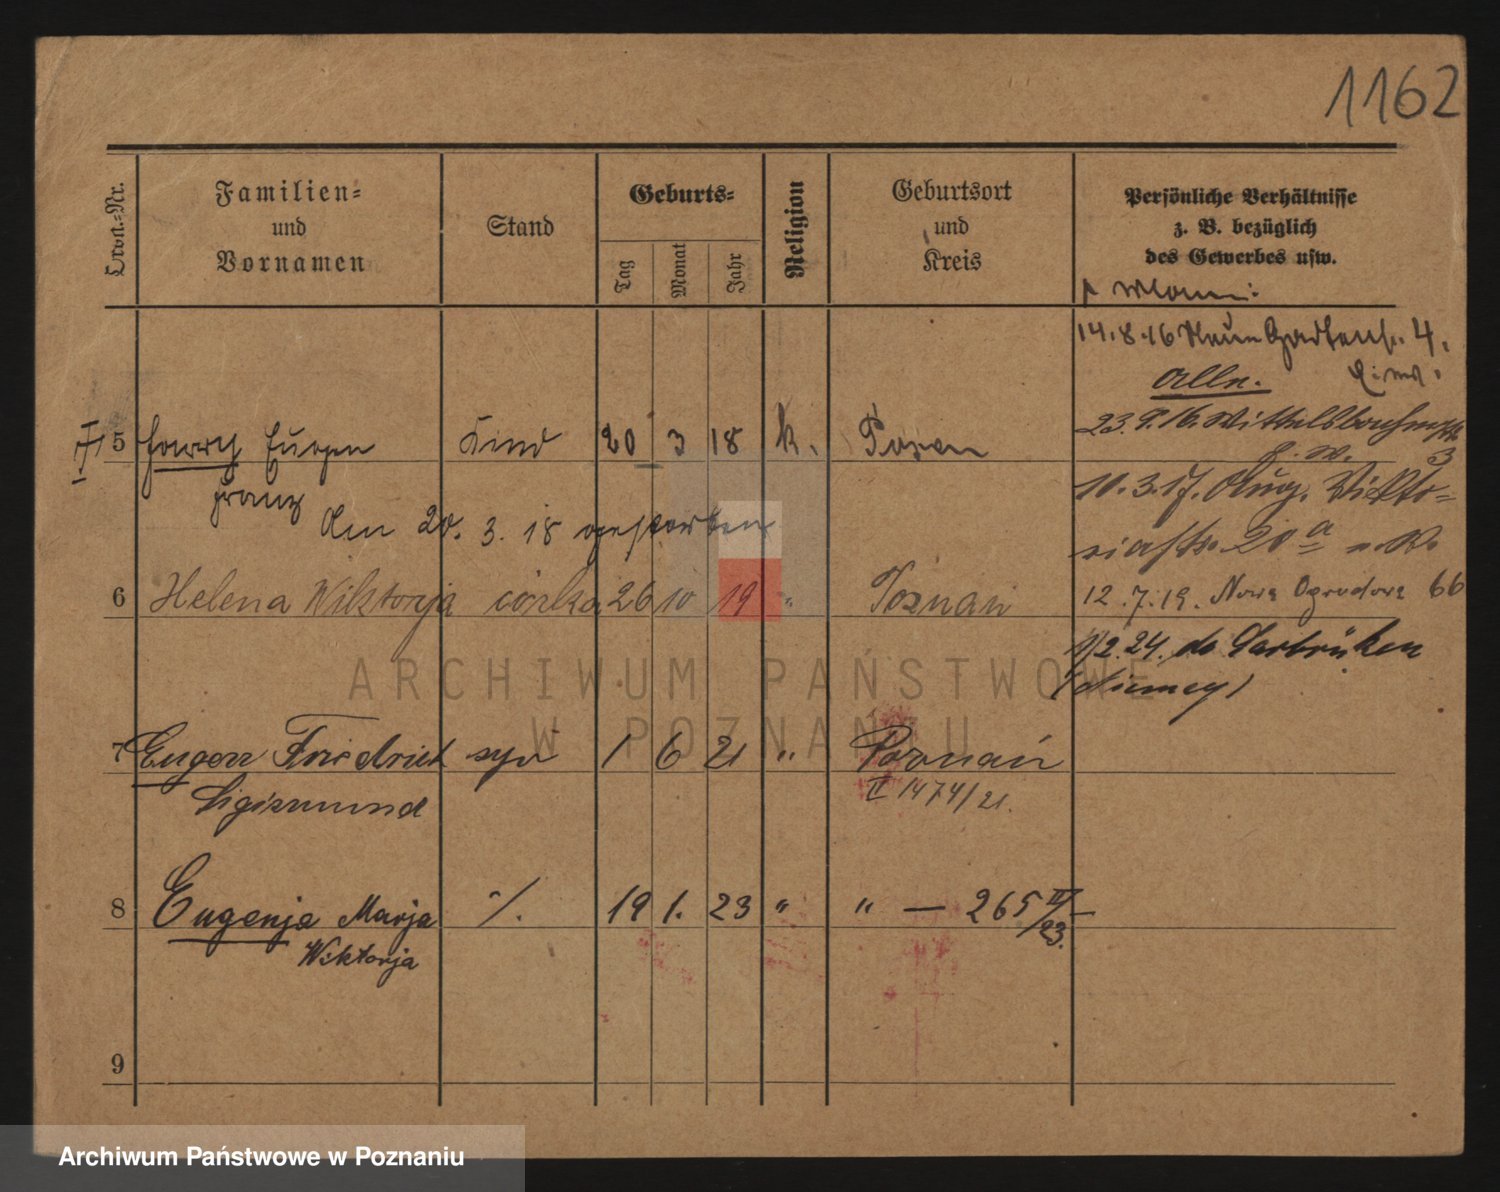 1162
Ord.-Nr.
Familien-
und
Vornamen
Stand
Geburts-
Tag
Monat
Jahr
Religion
Geburtsort
und
Kreis
Persönliche Verhältnisse
z. B. bezüglich
des Gewerbes usw.
14.8.16 Neue Gartenstr. 4.
alle.
23.9.16. Wittelsbacherstr
3
5 Harry Eugen Kind 20 3 18 k. Posen
Franz
10.3.17. Aug. Vikto-
riastr. 20a
Am 20. 3. 18 gestorben
6 Helena Wiktorja córka 26 10 19 " Poznań
12.7.19. Nowa Ogrodowa 66
1/2.24. do Sarbrüken
(Niemcy)
ARCHIWUM PAŃSTWOWE
W POZNANIU
7 Eugen Friedrich syn 1 6 21 " Poznań
Sigismund
II 1474/21.
8 Eugenja Marja ./. 19 1. 23 " " — 265 II/
23.
Wiktorja
9
Archiwum Państwowe w Poznaniu